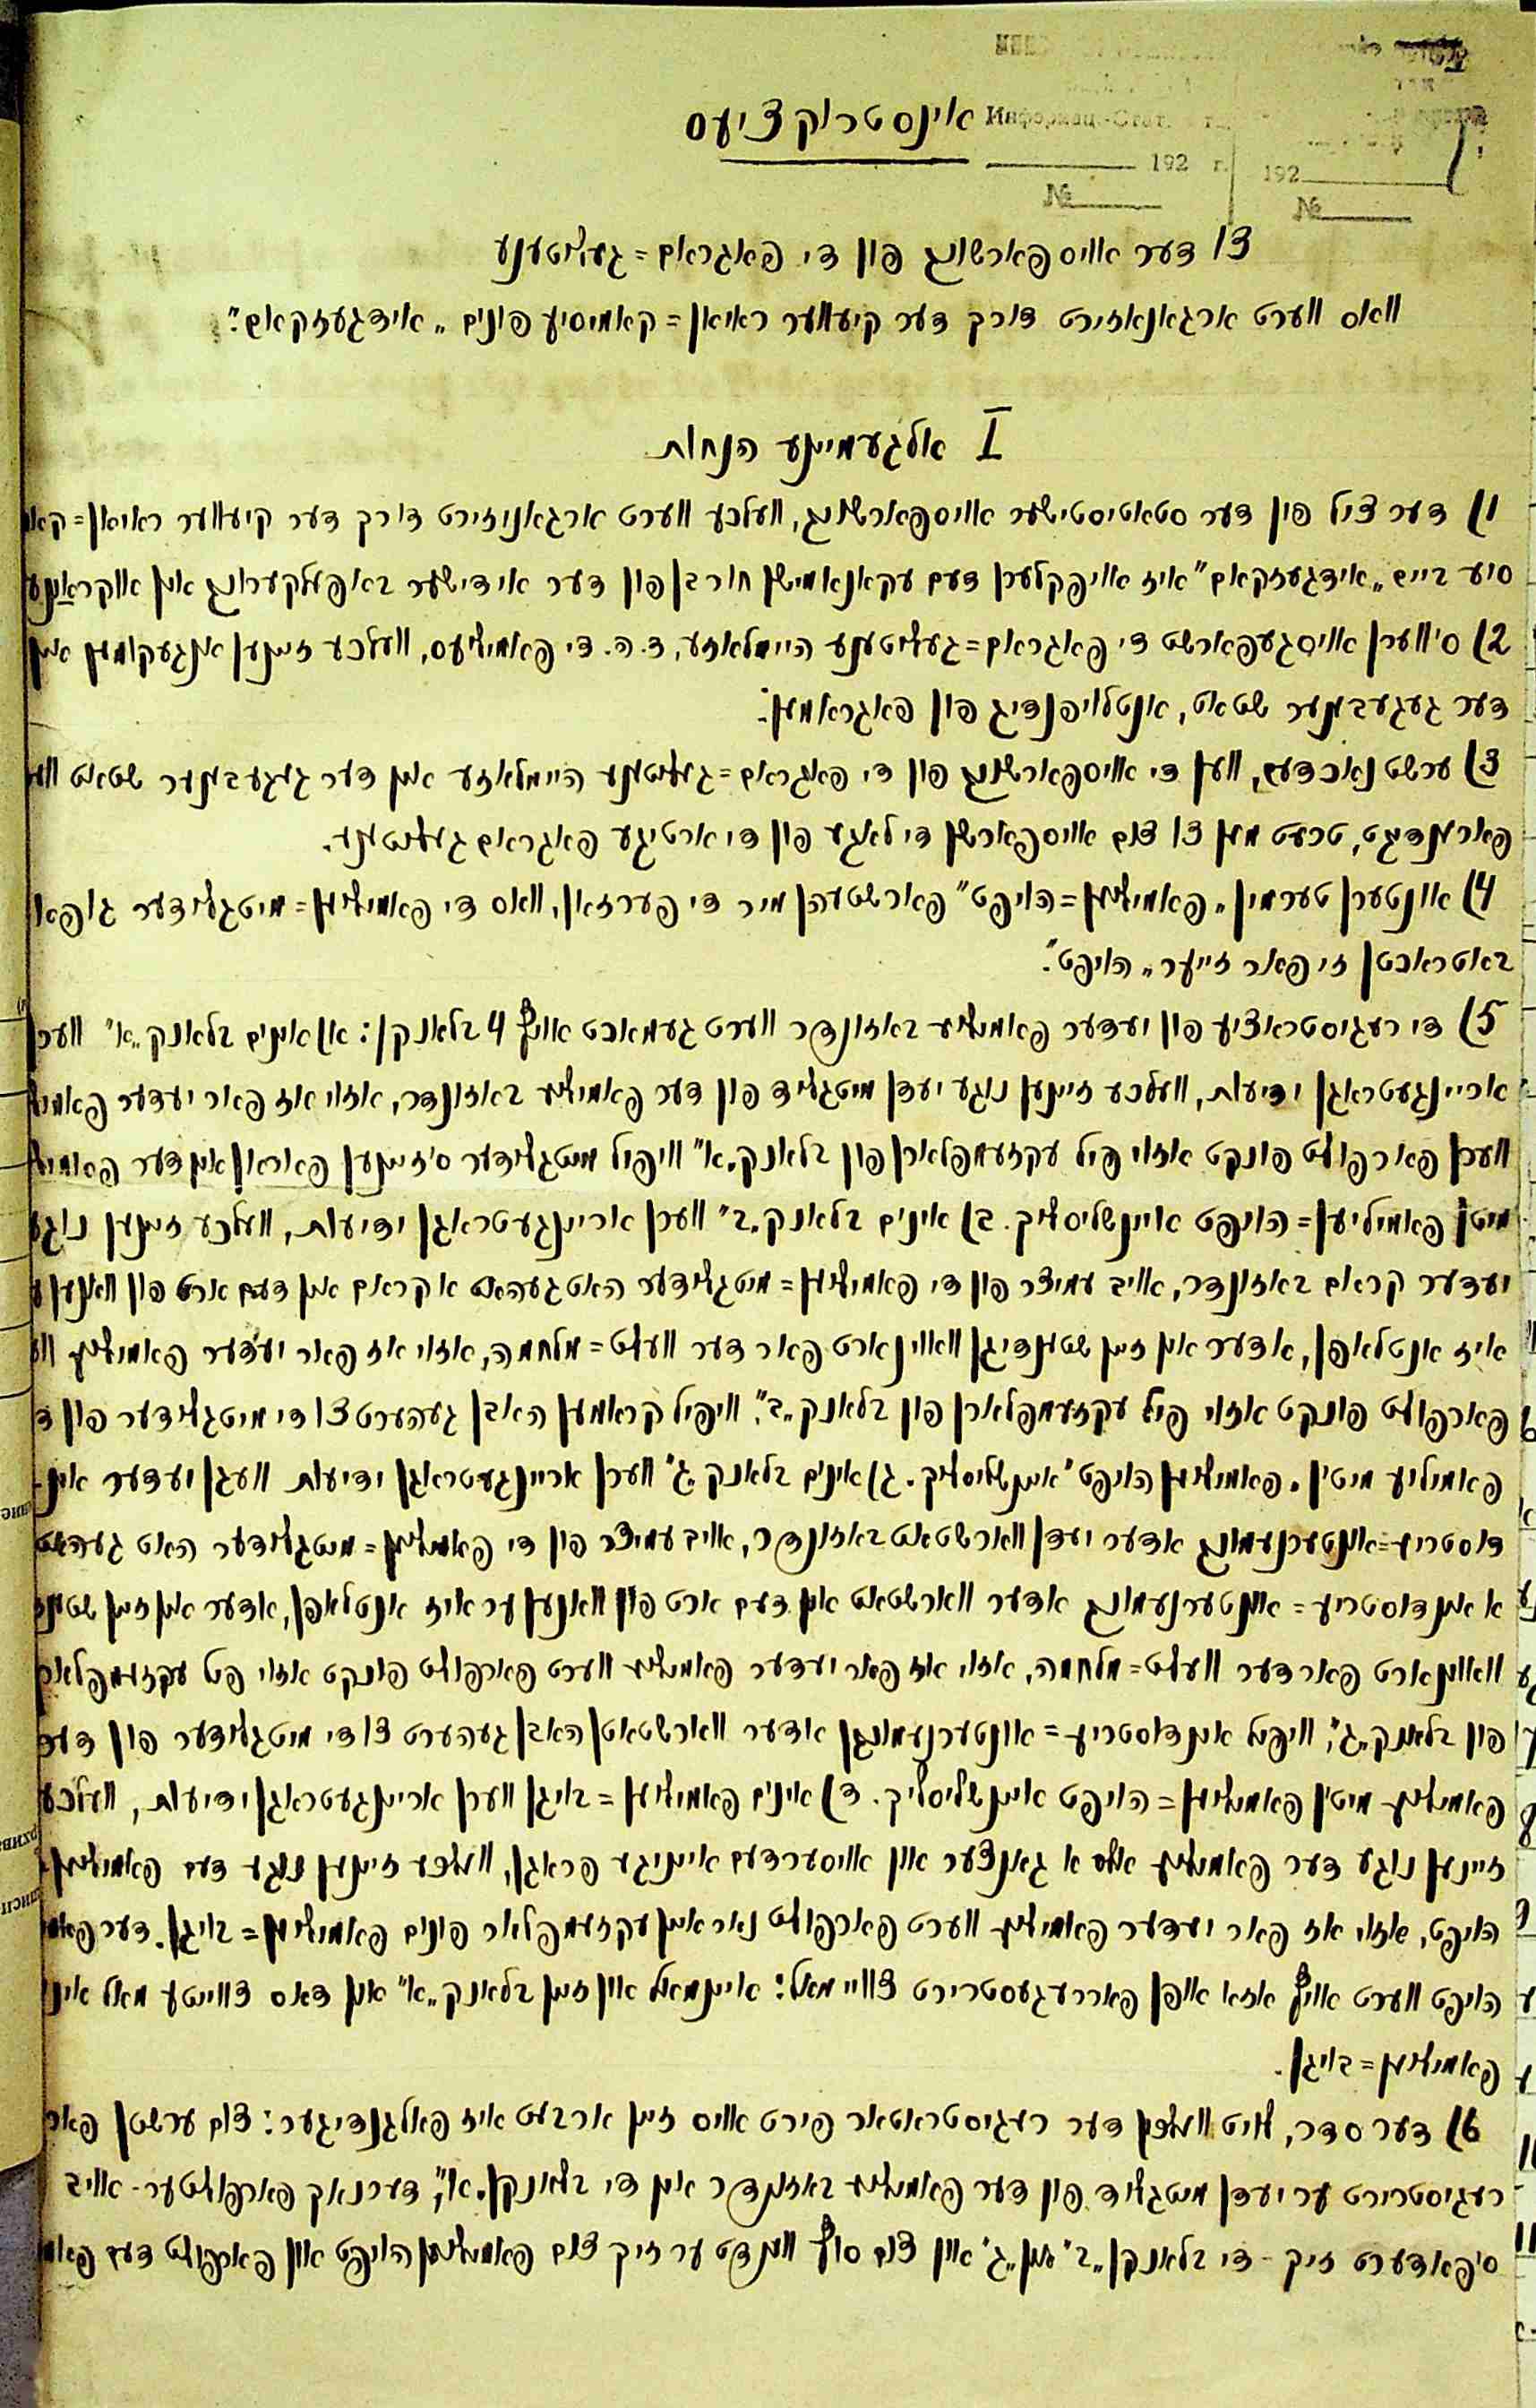 אינסטרוקציעס
Информац.-Стат.
192 г. 192
№ №
צו דער אויספארשונג פון די פאגראם=געליטענע
וואס ווערט ארגאנאזירט דורך דער קיעווער ראיאן=קאמיסיע פונים „אידגעזקאם".
I אלגעמיינע הנחות
1) דער ציל פון דער סטאטיסטישער אויספארשונג, וועלכע ווערט ארגאניזירט דורך דער קיעווער ראיאן=קאמ
סיע ביים „אידגעזקאם" איז אויפקלערן דעם עקאנאמישן חורבן פון דער אידישער באפעלקערונג אין אוקראינע
2) ס'ווערן אויסגעפארשט די פאגראם=געליטענע היימלאזע, ד.ה. די פאמיליעס, וועלכע זיינען אנגעקומען אין
דער געגעבענער שטאט, אנטלויפנדיג פון פאגראמען.
3) ערשט נאכדעם, ווען די אויספארשונג פון די פאגראם=געליטענע היימלאזע אין דער געגעבענער שטאט ווע
פארענדיגט, טרעט מען צו צום אויספארשן די לאגע פון די ארטיגע פאגראם געליטענע.
4) אונטערן טערמין „פאמיליען=הויפט" פארשטעהן מיר די פערזאן, וואס די פאמיליען=מיטגלידער גופא
באטראכטן זי פאר זייער „הויפט".
5) די רעגיסטראציע פון יעדער פאמיליע באזונדער ווערט געמאכט אויף 4 בלאנקן: א) אינים בלאנק „א" ווערן
אריינגעטראגן ידיעות, וועלכע זיינען נוגע יעדן מיטגליד פון דער פאמיליע באזונדער, אזוי אז פאר יעדער פאמיל
ווערן פארפולט פונקט אזוי פיל עקזעמפלארן פון בלאנק „א" וויפיל מיטגלידער ס'זיינען פאראן אין דער פאמיל
מיטן פאמיליען=הויפט איינשליסליך. ב) אינים בלאנק „ב" ווערן אריינגעטראגן ידיעות, וועלכע זיינען נוגע
יעדער קראם באזונדער, אויב עמיצער פון די פאמיליען=מיטגלידער האט געהאט א קראם אין דעם ארט פון וואנען ע
איז אנטלאפן, אדער אין זיין שטענדיגן וואוינארט פאר דער וועלט=מלחמה, אזוי אז פאר יעדער פאמיליע ווע
פארפולט פונקט אזוי פיל עקזעמפלארן פון בלאנק „ב", וויפיל קראמען האבן געהערט צו די מיטגלידער פון ד
פאמיליע מיט'ן „פאמיליען הויפט" איינשליסליך. ג) אינים בלאנק „ג" ווערן אריינגעטראגן ידיעות וועגן יעדער אינ-
דוסטריע=אונטערנעמונג אדער יעדן ווארשטאט באזונדער, אויב עמיצער פון די פאמיליען=מיטגלידער האט געהאט
א אינדוסטריע=אונטערנעמונג אדער ווארשטאט אין דעם ארט פון וואנען ער איז אנטלאפן, אדער אין זיין שטענד
וואוינארט פאר דער וועלט=מלחמה, אזוי אז פאר יעדער פאמיליע ווערט פארפולט פונקט אזוי פיל עקזעמפלאר
פון בלאנק „ג", וויפיל אינדוסטריע=אונטערנעמונגן אדער ווארשטאטן האבן געהערט צו די מיטגלידער פון דער
פאמיליע מיט'ן פאמיליען=הויפט איינשליסליך. ד) אינים פאמיליען=בויגן ווערן אריינגעטראגן ידיעות, וועלכע
זיינען נוגע דער פאמיליע אלס א גאנצער און אויסערדעם אייניגע פראגן, וועלכע זיינען נוגע דעם פאמיליען-
הויפט, אזוי אז פאר יעדער פאמיליע ווערט פארפולט נאר איין עקזעמפלאר פונים פאמיליען=בויגן. דער פאמי
הויפט ווערט אויף אזא אופן פאררעגעסטרירט צוויי מאל: איינמאל אין זיין בלאנק „א" און דאס צווייטע מאל אינ
פאמיליען=בויגן.
6) דער סדר, לויט וועלכן דער רעגיסטראטאר פירט אויס זיין ארבעט איז פאלגנדיגער: צום ערשטן פאר
רעגיסטרירט ער יעדן מיטגליד פון דער פאמיליע באזונדער אין די בלאנקן „א", דערנאך פארפולט ער - אויב
ס'פאדערט זיך - די בלאנקן „ב" און „ג" און צום סוף ווענדט ער זיך צום פאמיליען הויפט און פארפולט דעם פאמ